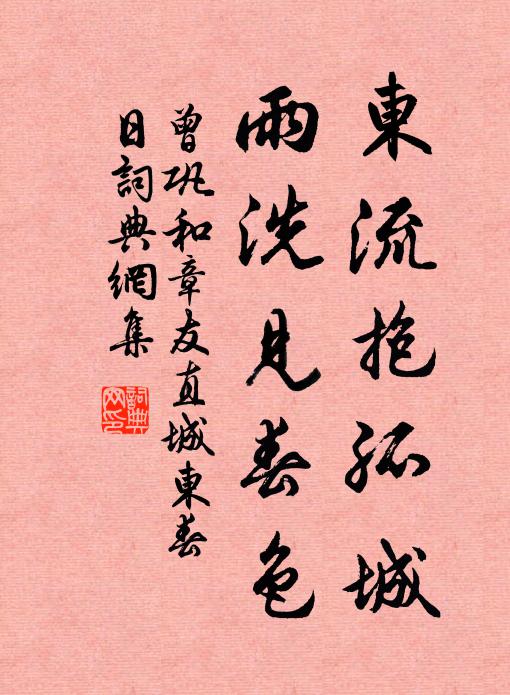 東流抱孤城
雨洗見春色
曾巩和章友直城東春
日詞典網集
詞典
网印